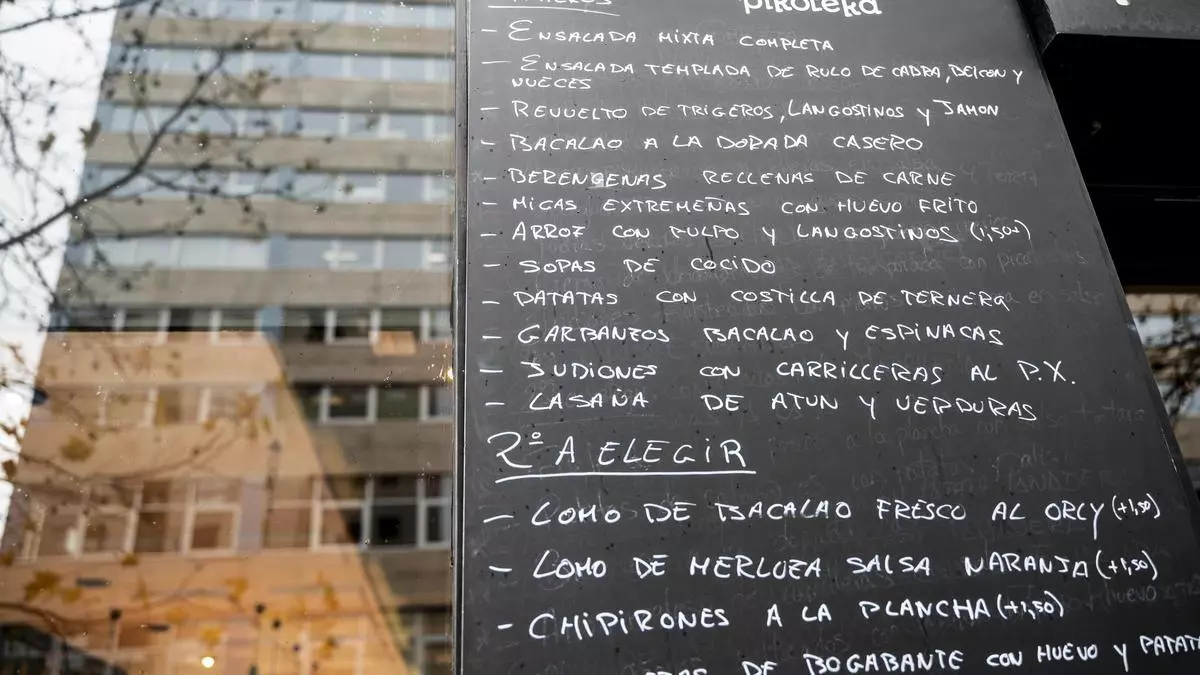 piRulera
- ENSALADA MIXTA COMPLETA
- ENSALADA TEMPLADA DE RULO DE CABRA, BEICON Y
NUECES
- REVUELTO DE TRIGEROS, LANGOSTINOS Y JAMON
- BACALAO A LA DORADA CASERO
- BERENGENAS RELLENAS DE CARNE
- MIGAS EXTREMEÑAS CON HUEVO FRITO
- ARROZ CON PULPO Y LANGOSTINOS (1,50+)
- SOPAS DE COCIDO
- PATATAS CON COSTILLA DE TERNERA
- GARBANZOS BACALAO Y ESPINACAS
- JUDIONES CON CARRILLERAS AL P.X.
- LASAÑA DE ATUN Y VERDURAS
2º A ELEGIR
- LOMO DE BACALAO FRESCO AL ORLY (+1,50)
- LOMO DE MERLUZA SALSA NARANJA (+1,50)
- CHIPIRONES A LA PLANCHA (+1,50)
DE BOGABANTE CON HUEVO Y PATATA